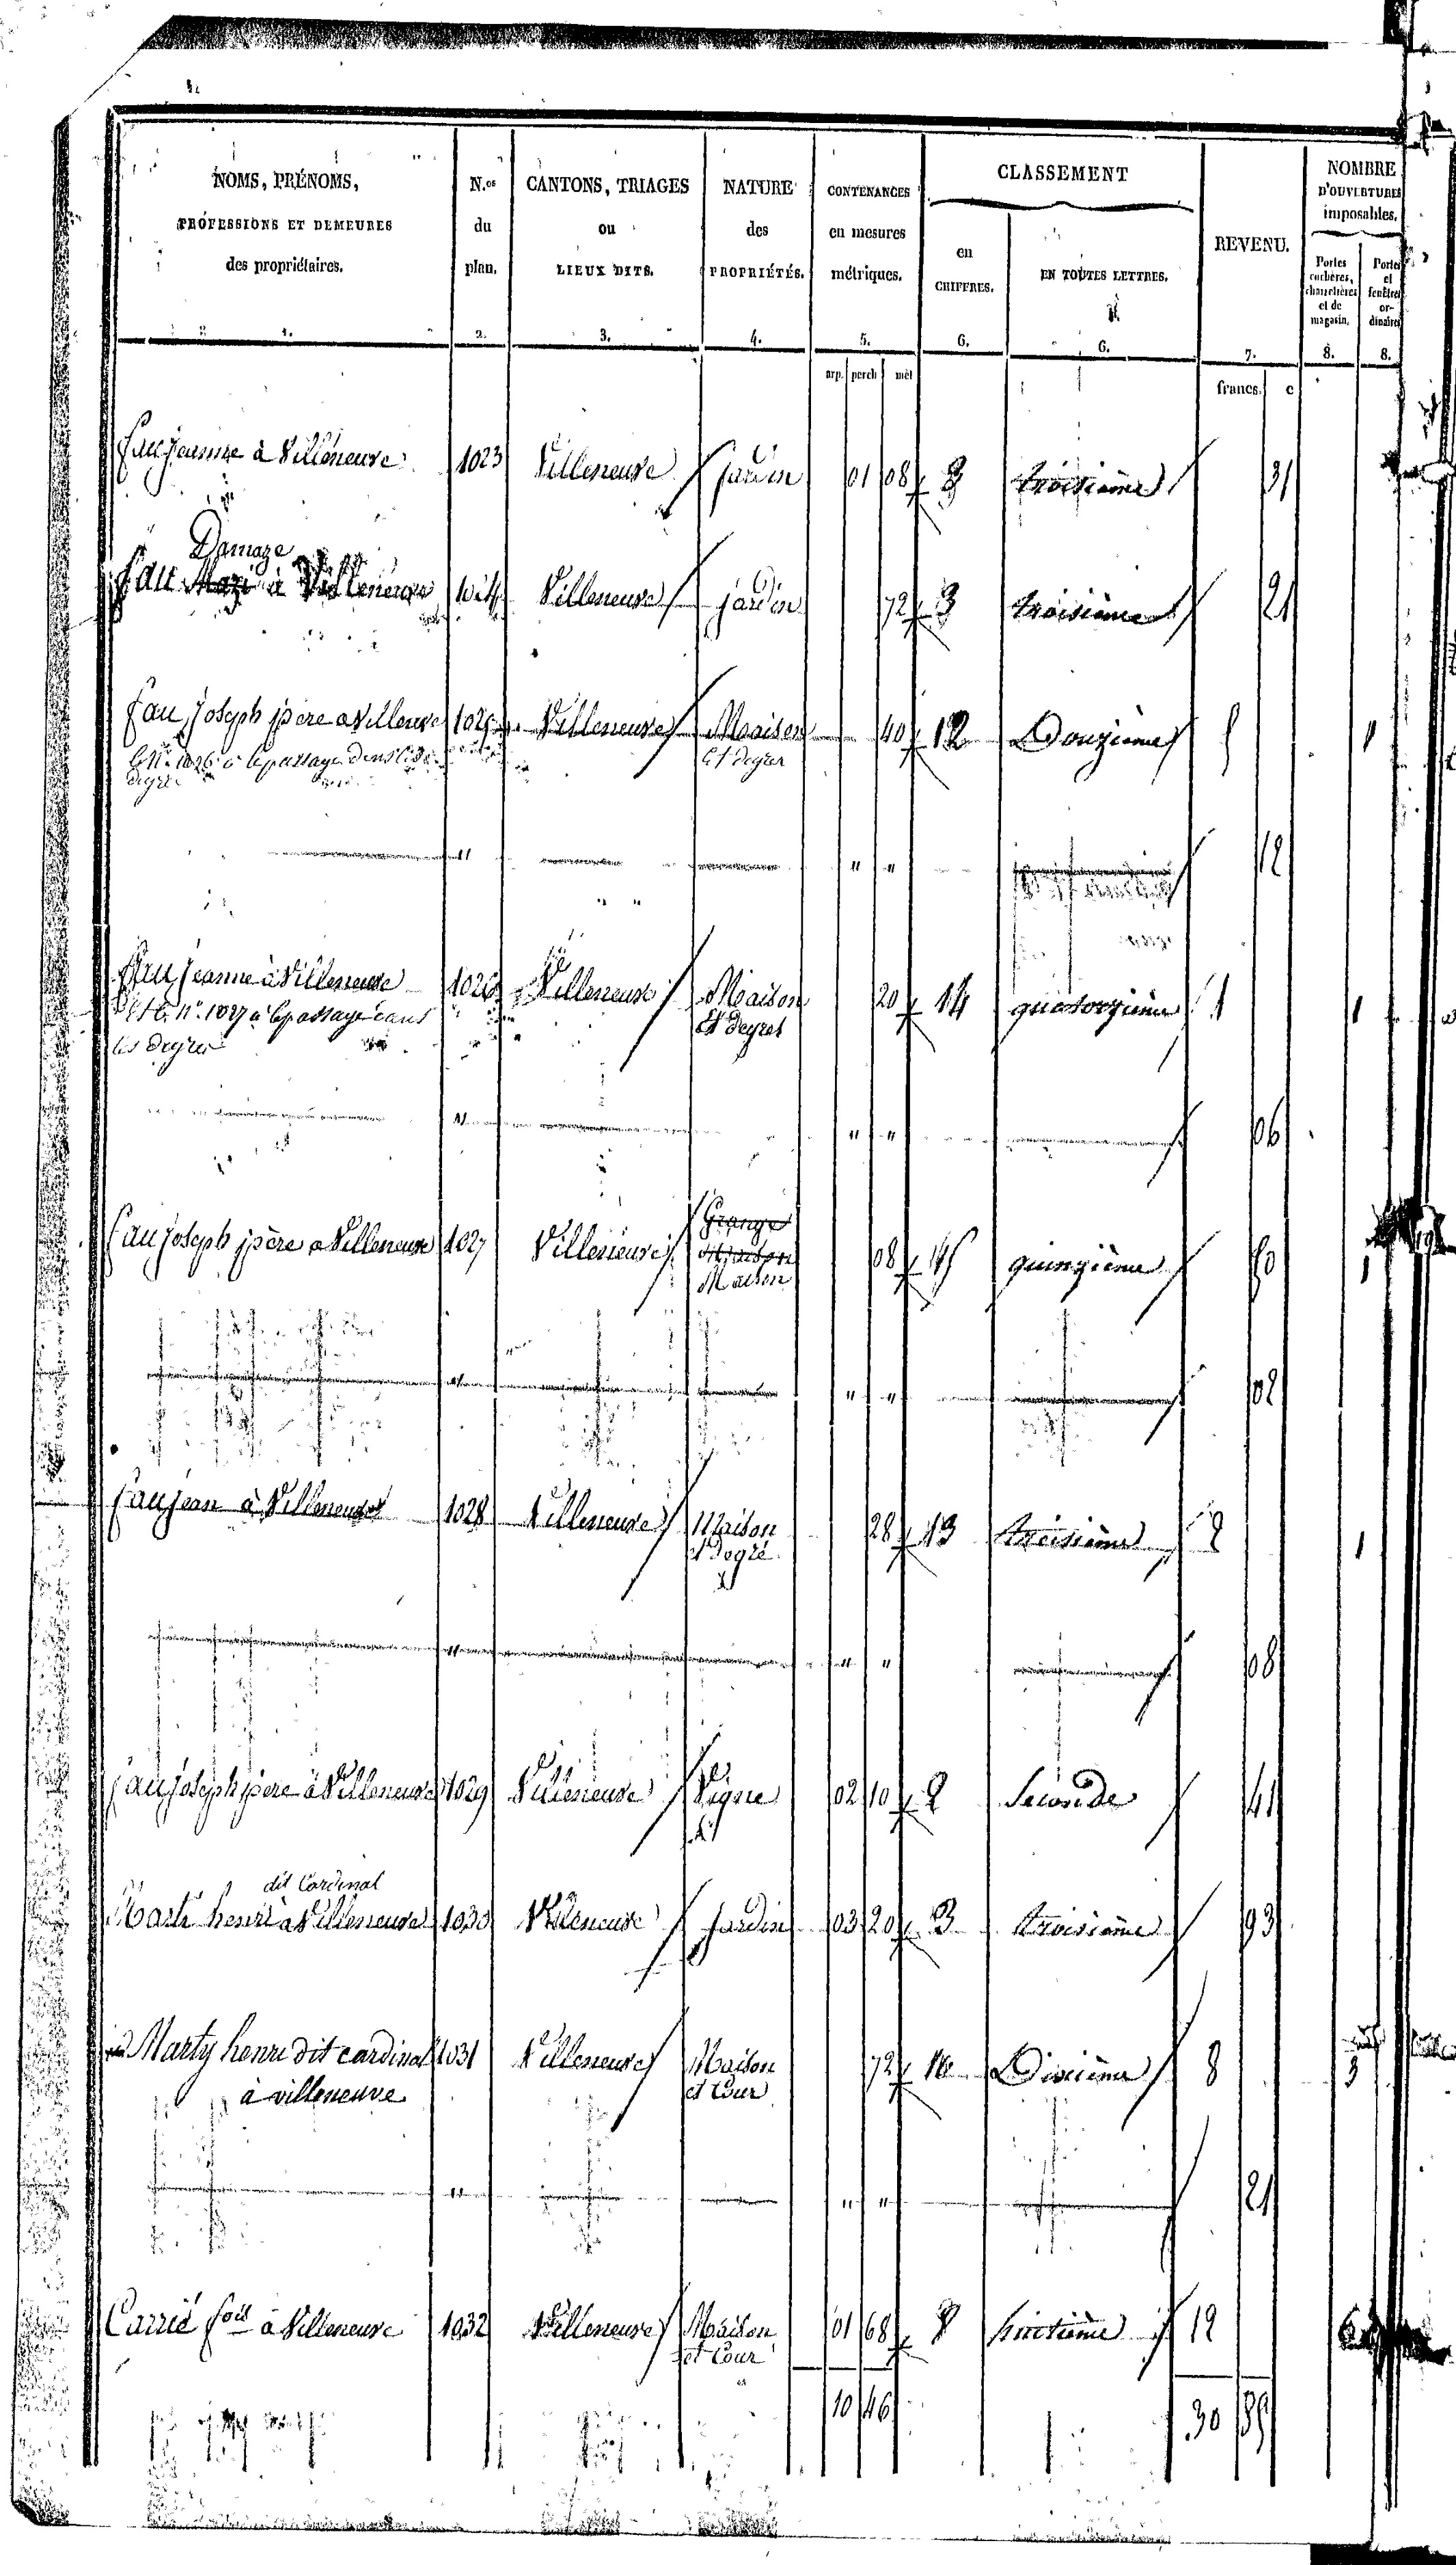 NOMS, PRÉNOMS, PROFESSIONS ET DEMEURES des propriétaires. N.os du plan. CANTONS, TRIAGES ou LIEUX DITS. NATURE des PROPRIÉTÉS. CONTENANCES en mesures métriques. CLASSEMENT en CHIFFRES. EN TOUTES LETTRES. REVENU. NOMBRE D'OUVERTURES imposables. Portes cochères, charretières et de magasin. Portes et fenêtres ordinaires
1. 2. 3. 4. 5. 6. 6. 7. 8. 8.
arp. perch mèt francs. c
Fau Jeanne à Villeneuve 1023 Villeneuve jardin 01 08 3 troisième 31
Damaze
Fau à Villeneuve Villeneuve jardin 72 3 troisième 21
Fau Joseph père a Villeneuve 1025 Villeneuve Maison 40 12 Douzième 1
Le N° 1026 a le passage dans le et degrés
12
Fau Jeanne à Villeneuve 1026 Villeneuve Maison 20 14 quatorzième 1 1
et le n° 1027 a le passage dans et degrés
les degrés
06
Grange
Fau Joseph père a Villeneuve 1027 Villeneuve Maison 08 15 quinzième 1
Maison
02
Fau Jean à Villeneuve 1028 Villeneuve Maison 28 13 treisième 2 1
et Degré
08
Fau Joseph père à Villeneuve 1029 Villeneuve Vigne 02 10 2 Seconde 41
dit Cardinal
Marti henri a Villeneuve 1030 Villeneuve Jardin 03 20 3 troisième 93
Marty henri dit cardinal 1031 Villeneuve Maison 72 10 Dixième 8 3
à villeneuve et Cour
21
Carrié à Villeneuve 1032 Villeneuve Maison 01 68 8 huitième 12 6
et Cour
10 46 30 89